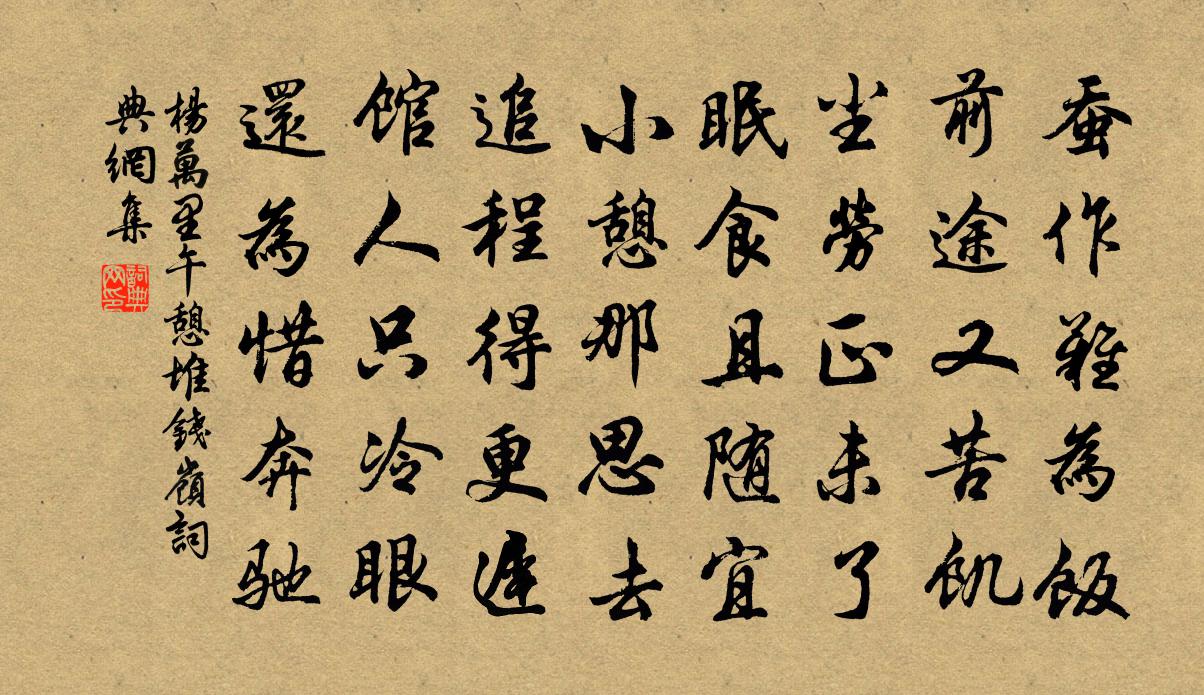 蚤作難為飯
前途又苦飢
坐勞正未了
眠食且随宜
小憩那思去
追程得更遲
館人只冷眼
還為惜奔馳
楊萬里午憩堆錢嶺詞
典網集
詞典
网印